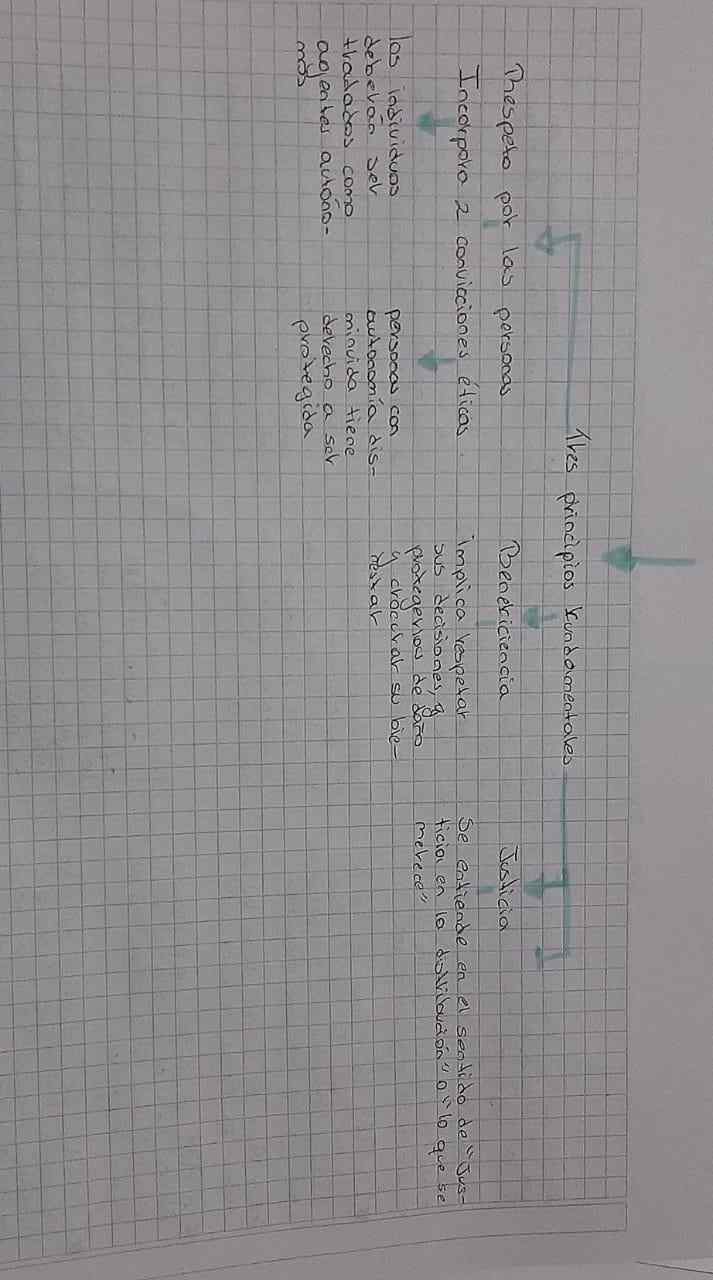 Tres principios fundamentales
Respeto por las personas
Incorpora 2 convicciones éticas.
los individuos
deberán ser
tratados como
agentes autóno-
mos
personas con
autonomía dis-
minuida tiene
derecho a ser
protegida
Beneficiencia
implica respetar
sus decisiones, y
protegerlos de daño
y procurar su bie-
nestar
Justicia
Se entiende en el sentido de "Jus-
ticia en la distribución" o "lo que se
merece"